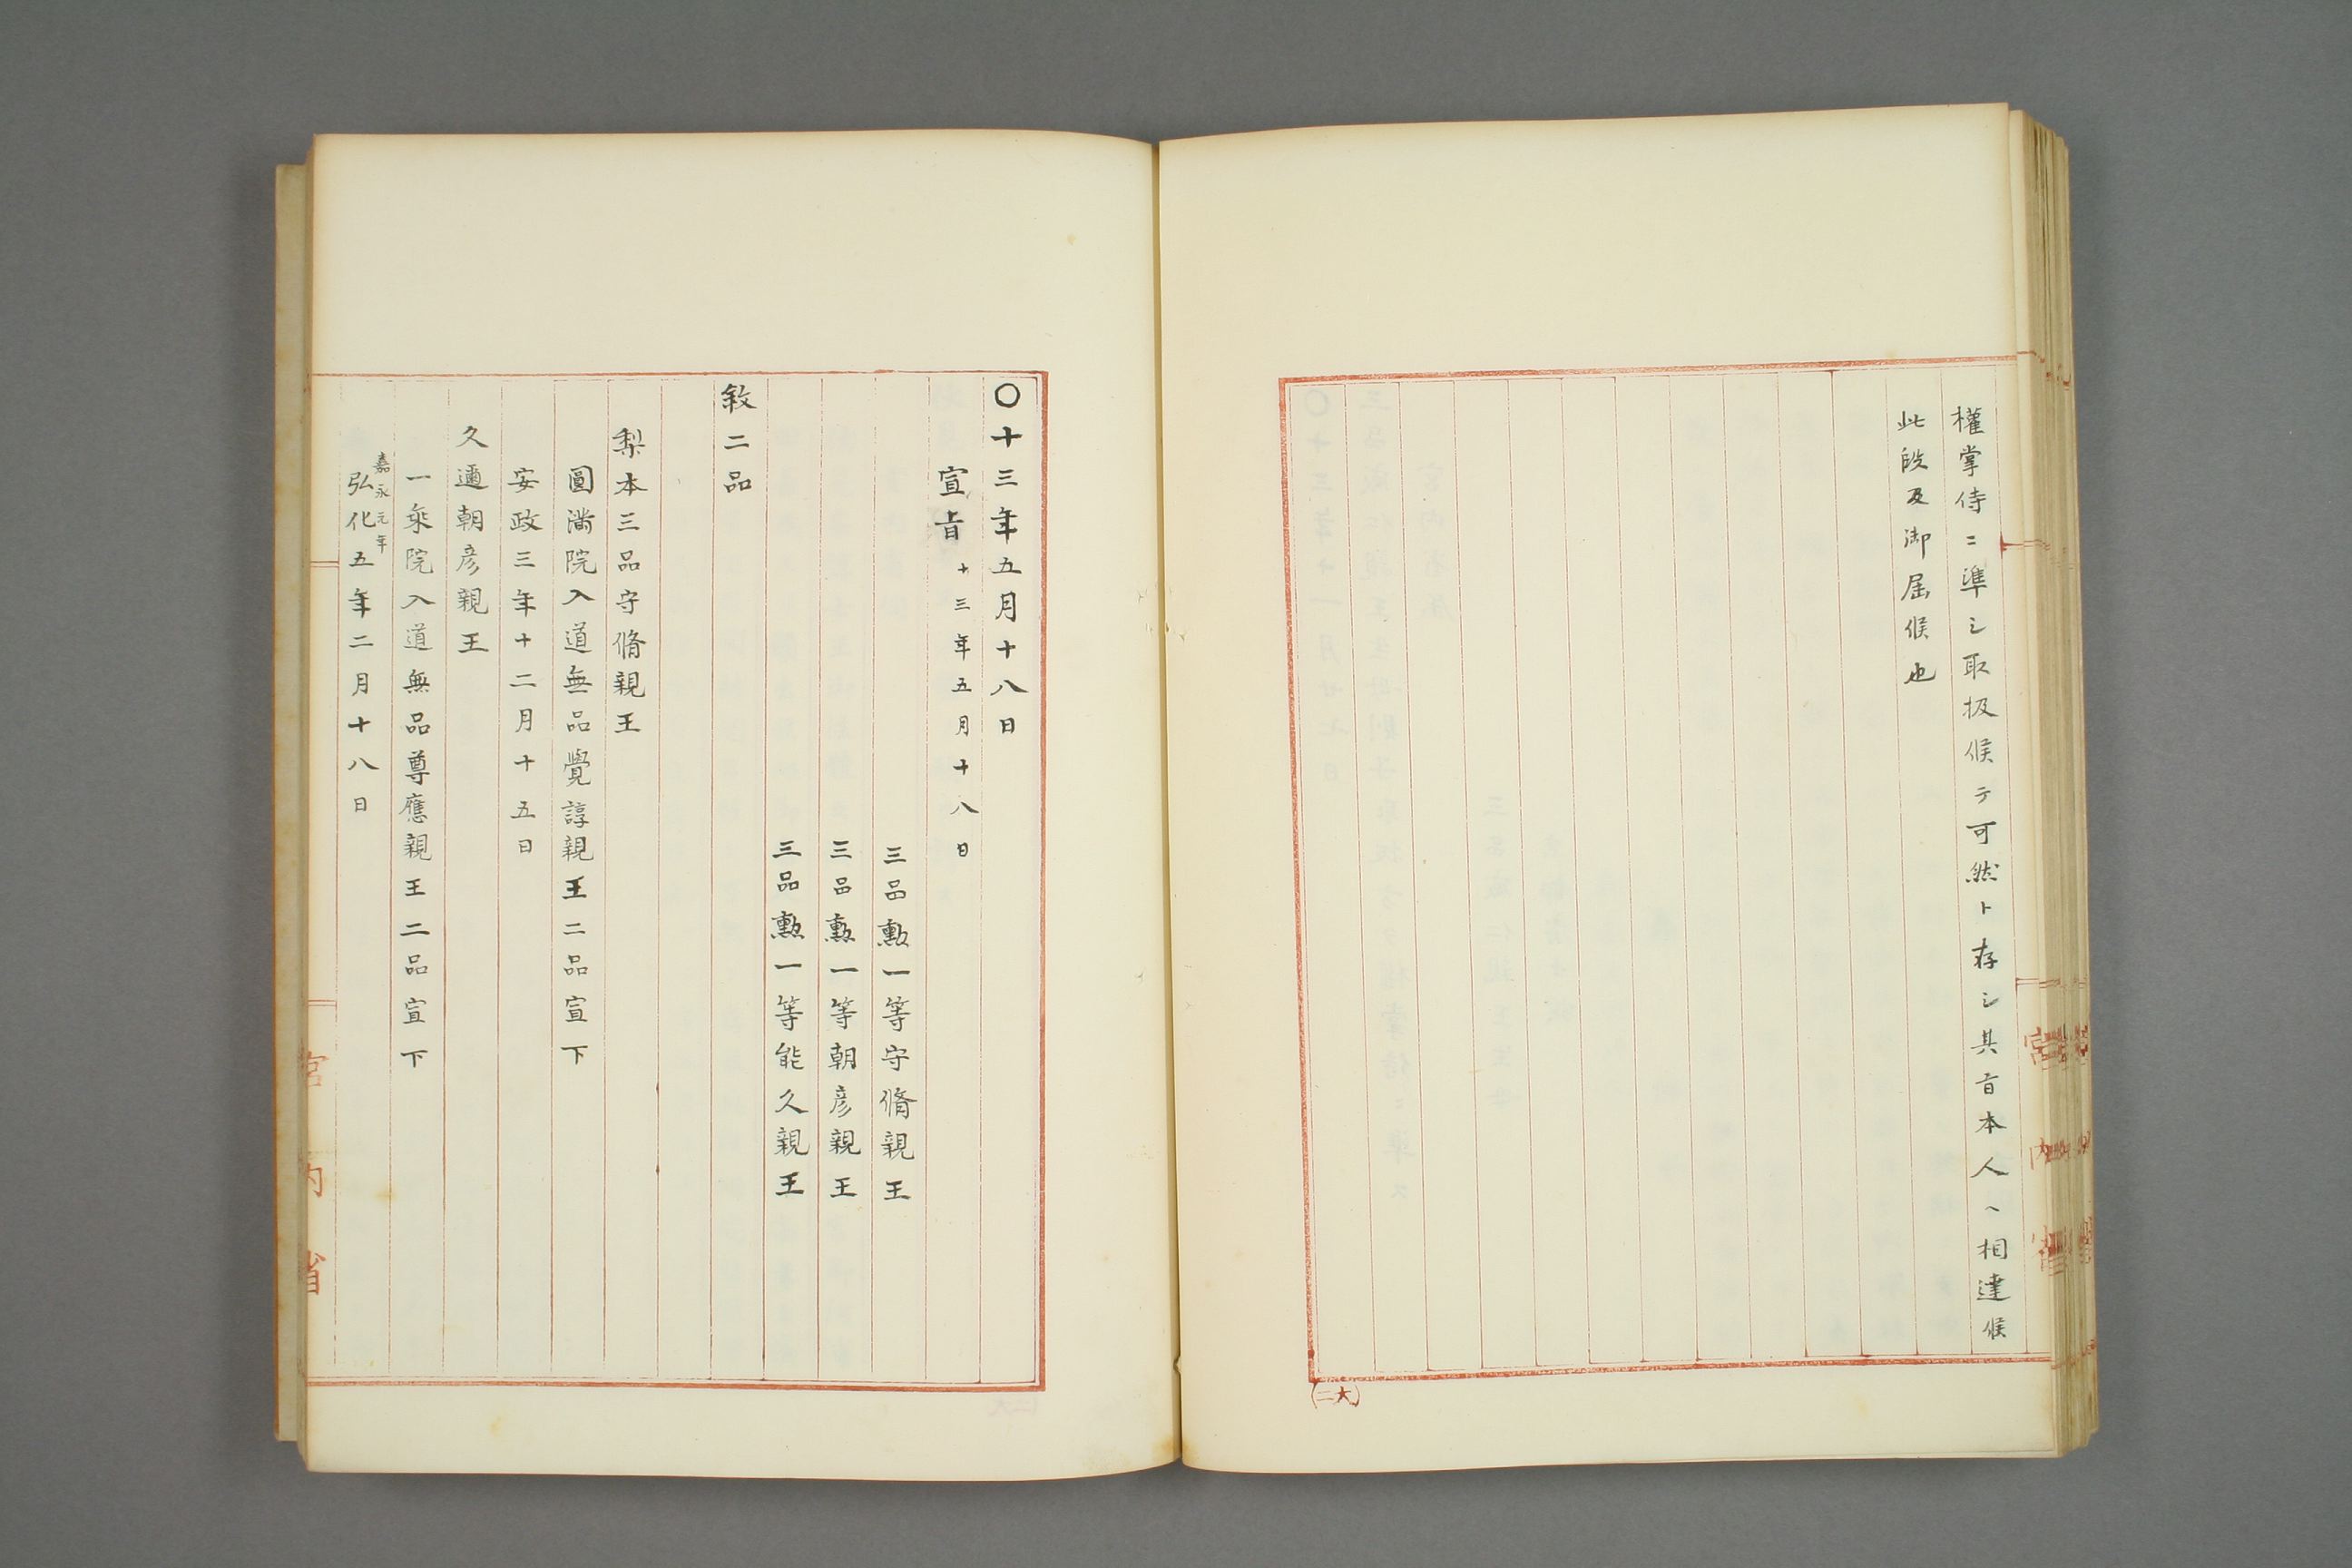 權掌侍ニ準シ取扱候テ可然ト存シ其旨本人ヘ相達候
此段及御届候也
(大二)
〇十三年五月十八日
宣旨 十三年五月十八日
三品勲一等守脩親王
三品勲一等朝彦親王
三品勲一等能久親王
敘二品
梨本三品守脩親王
圓滿院入道無品覺諄親王二品宣下
安政三年十二月十五日
久邇朝彦親王
一乘院入道無品尊應親王二品宣下
嘉永元年
弘化五年二月十八日
宮内省